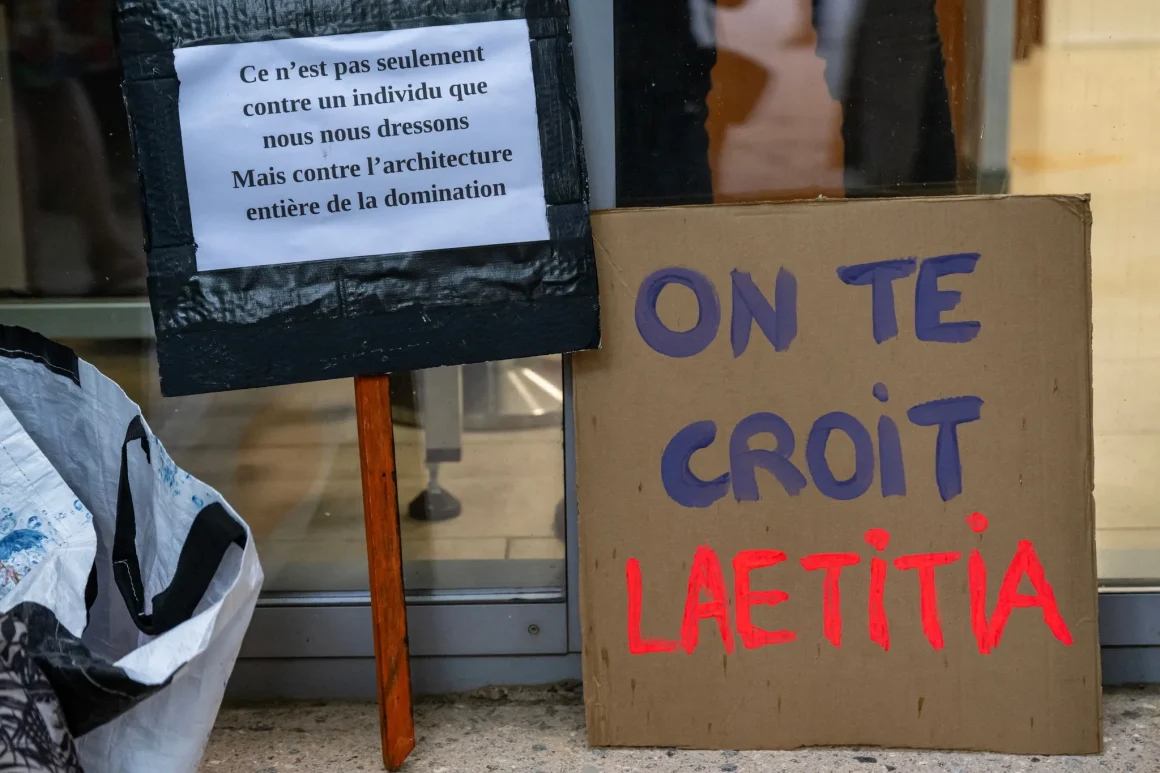 Ce n’est pas seulement
contre un individu que
nous nous dressons
Mais contre l’architecture
entière de la domination
ON TE
CROiT
LAETiTiA